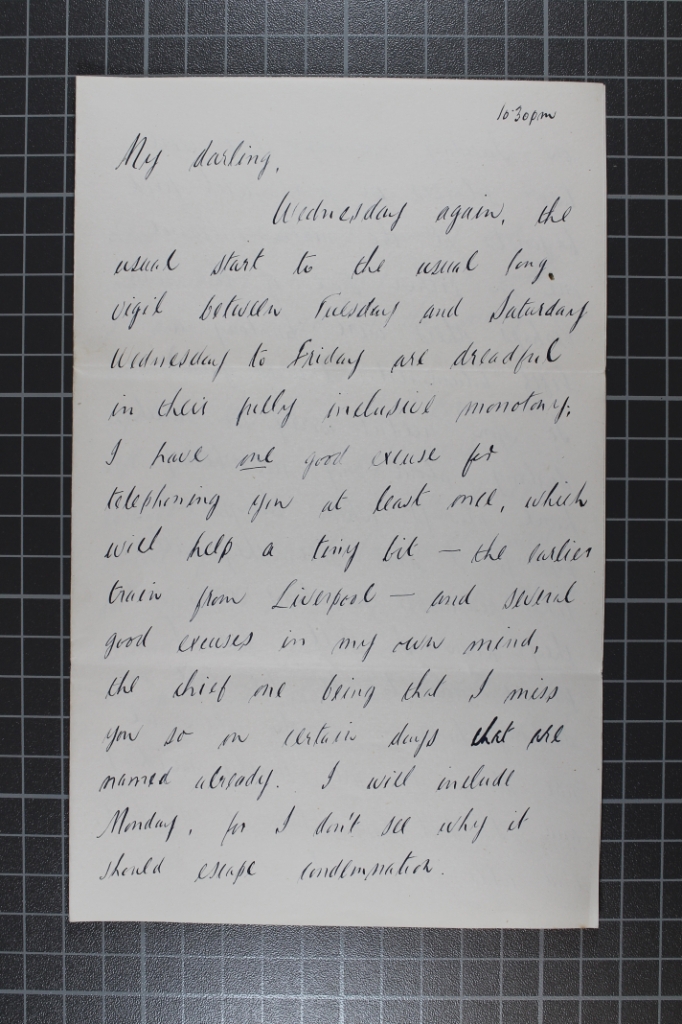 10.30pm
My darling,
Wednesday again, the
usual start to the usual long
vigil between Tuesday and Saturday
Wednesday to Friday are dreadful
in their fully inclusive monotony;
I have one good excuse for
telephoning you at least once, which
will help a tiny bit — the earlier
train from Liverpool — and several
good excuses in my own mind,
the chief one being that I miss
you so on certain days that are
named already. I will include
Monday, for I don't see why it
should escape condemnation.